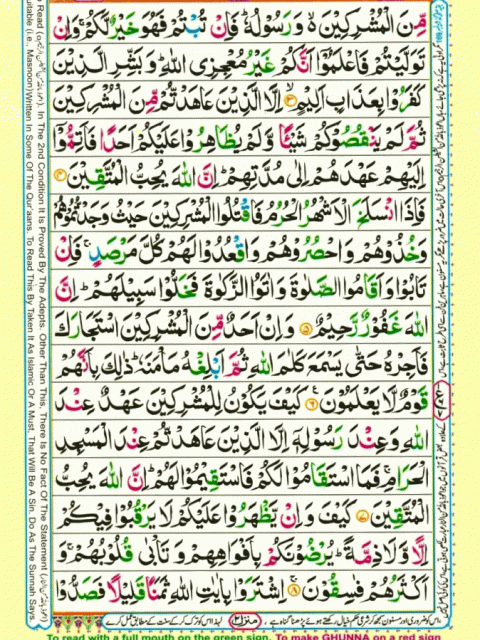 مِّنَ الْمُشْرِكِيْنَ ەۙ وَرَسُوْلُهٗ ؕ فَاِنْ تُبْتُمْ فَهُوَ خَيْرٌ لَّكُمْ ۚ وَاِنْ
تَوَلَّيْتُمْ فَاعْلَمُوْۤا اَنَّكُمْ غَيْرُ مُعْجِزِى اللّٰهِ ؕ وَبَشِّرِ الَّذِيْنَ
كَفَرُوْا بِعَذَابٍ اَلِيْمٍ ۙ‏﴿۳﴾ اِلَّا الَّذِيْنَ عَاهَدْتُّمْ مِّنَ الْمُشْرِكِيْنَ
ثُمَّ لَمْ يَنْقُصُوْكُمْ شَيْئًا وَّلَمْ يُظَاهِرُوْا عَلَيْكُمْ اَحَدًا فَاَتِمُّوْۤا
اِلَيْهِمْ عَهْدَهُمْ اِلٰى مُدَّتِهِمْ ؕ اِنَّ اللّٰهَ يُحِبُّ الْمُتَّقِيْنَ ﴿۴﴾
فَاِذَا انْسَلَخَ الْاَشْهُرُ الْحُرُمُ فَاقْتُلُوا الْمُشْرِكِيْنَ حَيْثُ وَجَدْتُّمُوْهُمْ
وَخُذُوْهُمْ وَاحْصُرُوْهُمْ وَاقْعُدُوْا لَهُمْ كُلَّ مَرْصَدٍ ۚ فَاِنْ
تَابُوْا وَاَقَامُوا الصَّلٰوةَ وَاٰتَوُا الزَّكٰوةَ فَخَلُّوْا سَبِيْلَهُمْ ؕ اِنَّ
اللّٰهَ غَفُوْرٌ رَّحِيْمٌ ﴿۵﴾ وَاِنْ اَحَدٌ مِّنَ الْمُشْرِكِيْنَ اسْتَجَارَكَ
فَاَجِرْهُ حَتّٰى يَسْمَعَ كَلٰمَ اللّٰهِ ثُمَّ اَبْلِغْهُ مَاْمَنَهٗ ؕ ذٰلِكَ بِاَنَّهُمْ
قَوْمٌ لَّا يَعْلَمُوْنَ ﴿۶﴾ كَيْفَ يَكُوْنُ لِلْمُشْرِكِيْنَ عَهْدٌ عِنْدَ
اللّٰهِ وَعِنْدَ رَسُوْلِهٖۤ اِلَّا الَّذِيْنَ عَاهَدْتُّمْ عِنْدَ الْمَسْجِدِ
الْحَرَامِ ۚ فَمَا اسْتَقَامُوْا لَكُمْ فَاسْتَقِيْمُوْا لَهُمْ ؕ اِنَّ اللّٰهَ يُحِبُّ
الْمُتَّقِيْنَ ﴿۷﴾ كَيْفَ وَاِنْ يَّظْهَرُوْا عَلَيْكُمْ لَا يَرْقُبُوْا فِيْكُمْ
اِلًّا وَّلَا ذِمَّةً ؕ يُرْضُوْنَكُمْ بِاَفْوَاهِهِمْ وَتَاْبٰى قُلُوْبُهُمْ ۚ وَ
اَكْثَرُهُمْ فٰسِقُوْنَ ۚ﴿۸﴾ اِشْتَرَوْا بِاٰيٰتِ اللّٰهِ ثَمَنًا قَلِيْلًا فَصَدُّوْا
منزل۲
To read with a full mouth on the green sign. To make GHUNNA on a red sign
In The 2nd Condition It Is Proved By The Adepts. Other Than This, There Is No Fact Of The Statement
(i.e., Masnoon)Written In Some Of The Qur'aans. To Read This By Taken It As Islamic Or A Must, That Will Be A Sin. Do As The Sunnah Says.